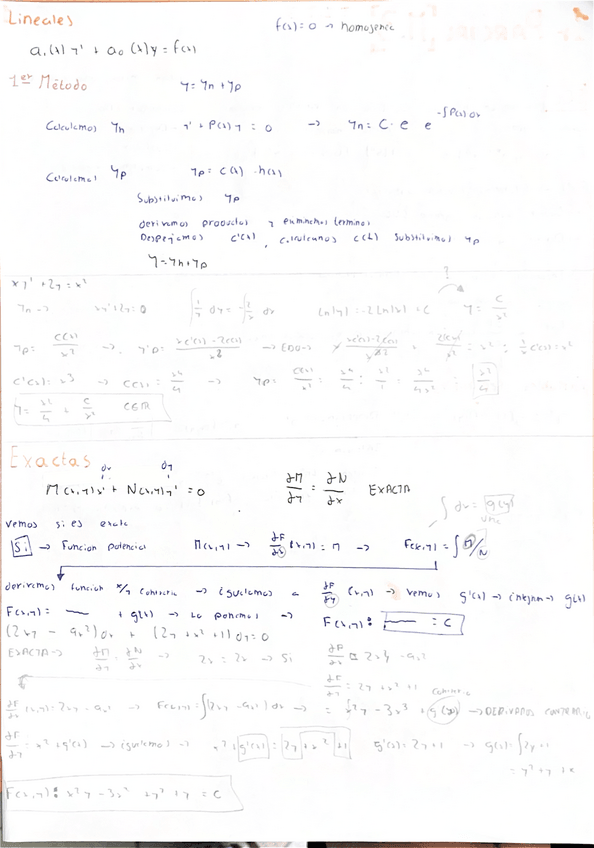 Lineales
f(x)=0 → homogenea
a₁(x) y' + a₀(x)y = f(x)
1er Método y = yh + yp
Calculamos yh y' + P(x) y = 0 → yh = C · e e^-∫P(x) dx
Calculamos yp yp = c(x) · h(x)
Substituimos yp
derivamos productos y eliminamos terminos
Despejamos c'(x), calculamos c(x) substituimos yp
y = yh + yp
xy' + 2y = x²
?
yh → xy' + 2y = 0 ∫ 1/y dy = -∫ 2/x dx ln|y| = -2ln|x| + C y = C/x²
yp = c(x)/x² → y'p =
→ EDO →
c'(x) = x³ → c(x) = x⁴/4 → yp = c(x)/x²
y = x²/4 + C/x² C∈R
Exactas
dx dy
M(x,y)x' + N(x,y)y' = 0 ∂M/∂y = ∂N/∂x EXACTA
vemos si es exacta
Si → Funcion potencial M(x,y) → ∂F/∂x (x,y) = M → F(x,y) = ∫ M/N
derivamos funcion x/y contraria → igualamos a ∂F/∂y (x,y) → vemos g'(x) → integran → g(x)
F(x,y) = + g(x) → Lo ponemos → F(x,y) = = C
(2xy - 9x²)dx + (2y + x² + 1)dy = 0
EXACTA → ∂M/∂y = ∂N/∂x → 2x = 2x → Si ∂F/∂x = 2xy - 9x²
∂F/∂y = 2y + x² + 1
∂F/∂x (x,y) = 2xy - 9x² → F(x,y) = ∫(2xy - 9x²) dx → = x²y - 3x³ + g(y) → DERIVAMOS CONTRARIA
∂F/∂y = x² + g'(x) → igualamos → x² + g'(x) = 2y + x² + 1 g'(x) = 2y + 1 → g(x) = ∫2y + 1
= y² + y + c
F(x,y) = x²y - 3x³ + y² + y = C